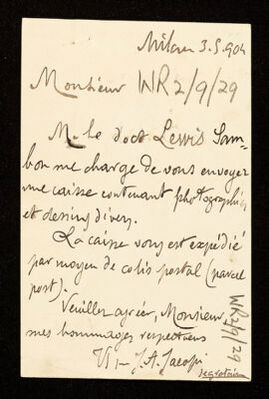 Milan 3.5.904
Monsieur WR2/9/29
M. le doct Lewis Sam-
bon me charge de vous envoyer
une caisse contenant photographies
et dessins divers.
La caisse vous est expédié
par moyen de colis postal (parcel
post).
Veuillez agréer, Monsieur,
mes hommages respectueux
J. A. Jacopi
WR2/9/29